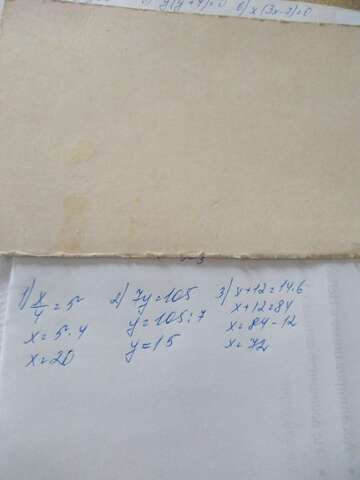 y(y+4)=0 6) x(3x-2)=0
1) x/4=5 2) 7y=105 3) x+12=14·6
x=5·4 y=105:7 x+12=84
x=20 y=15 x=84-12
x=72